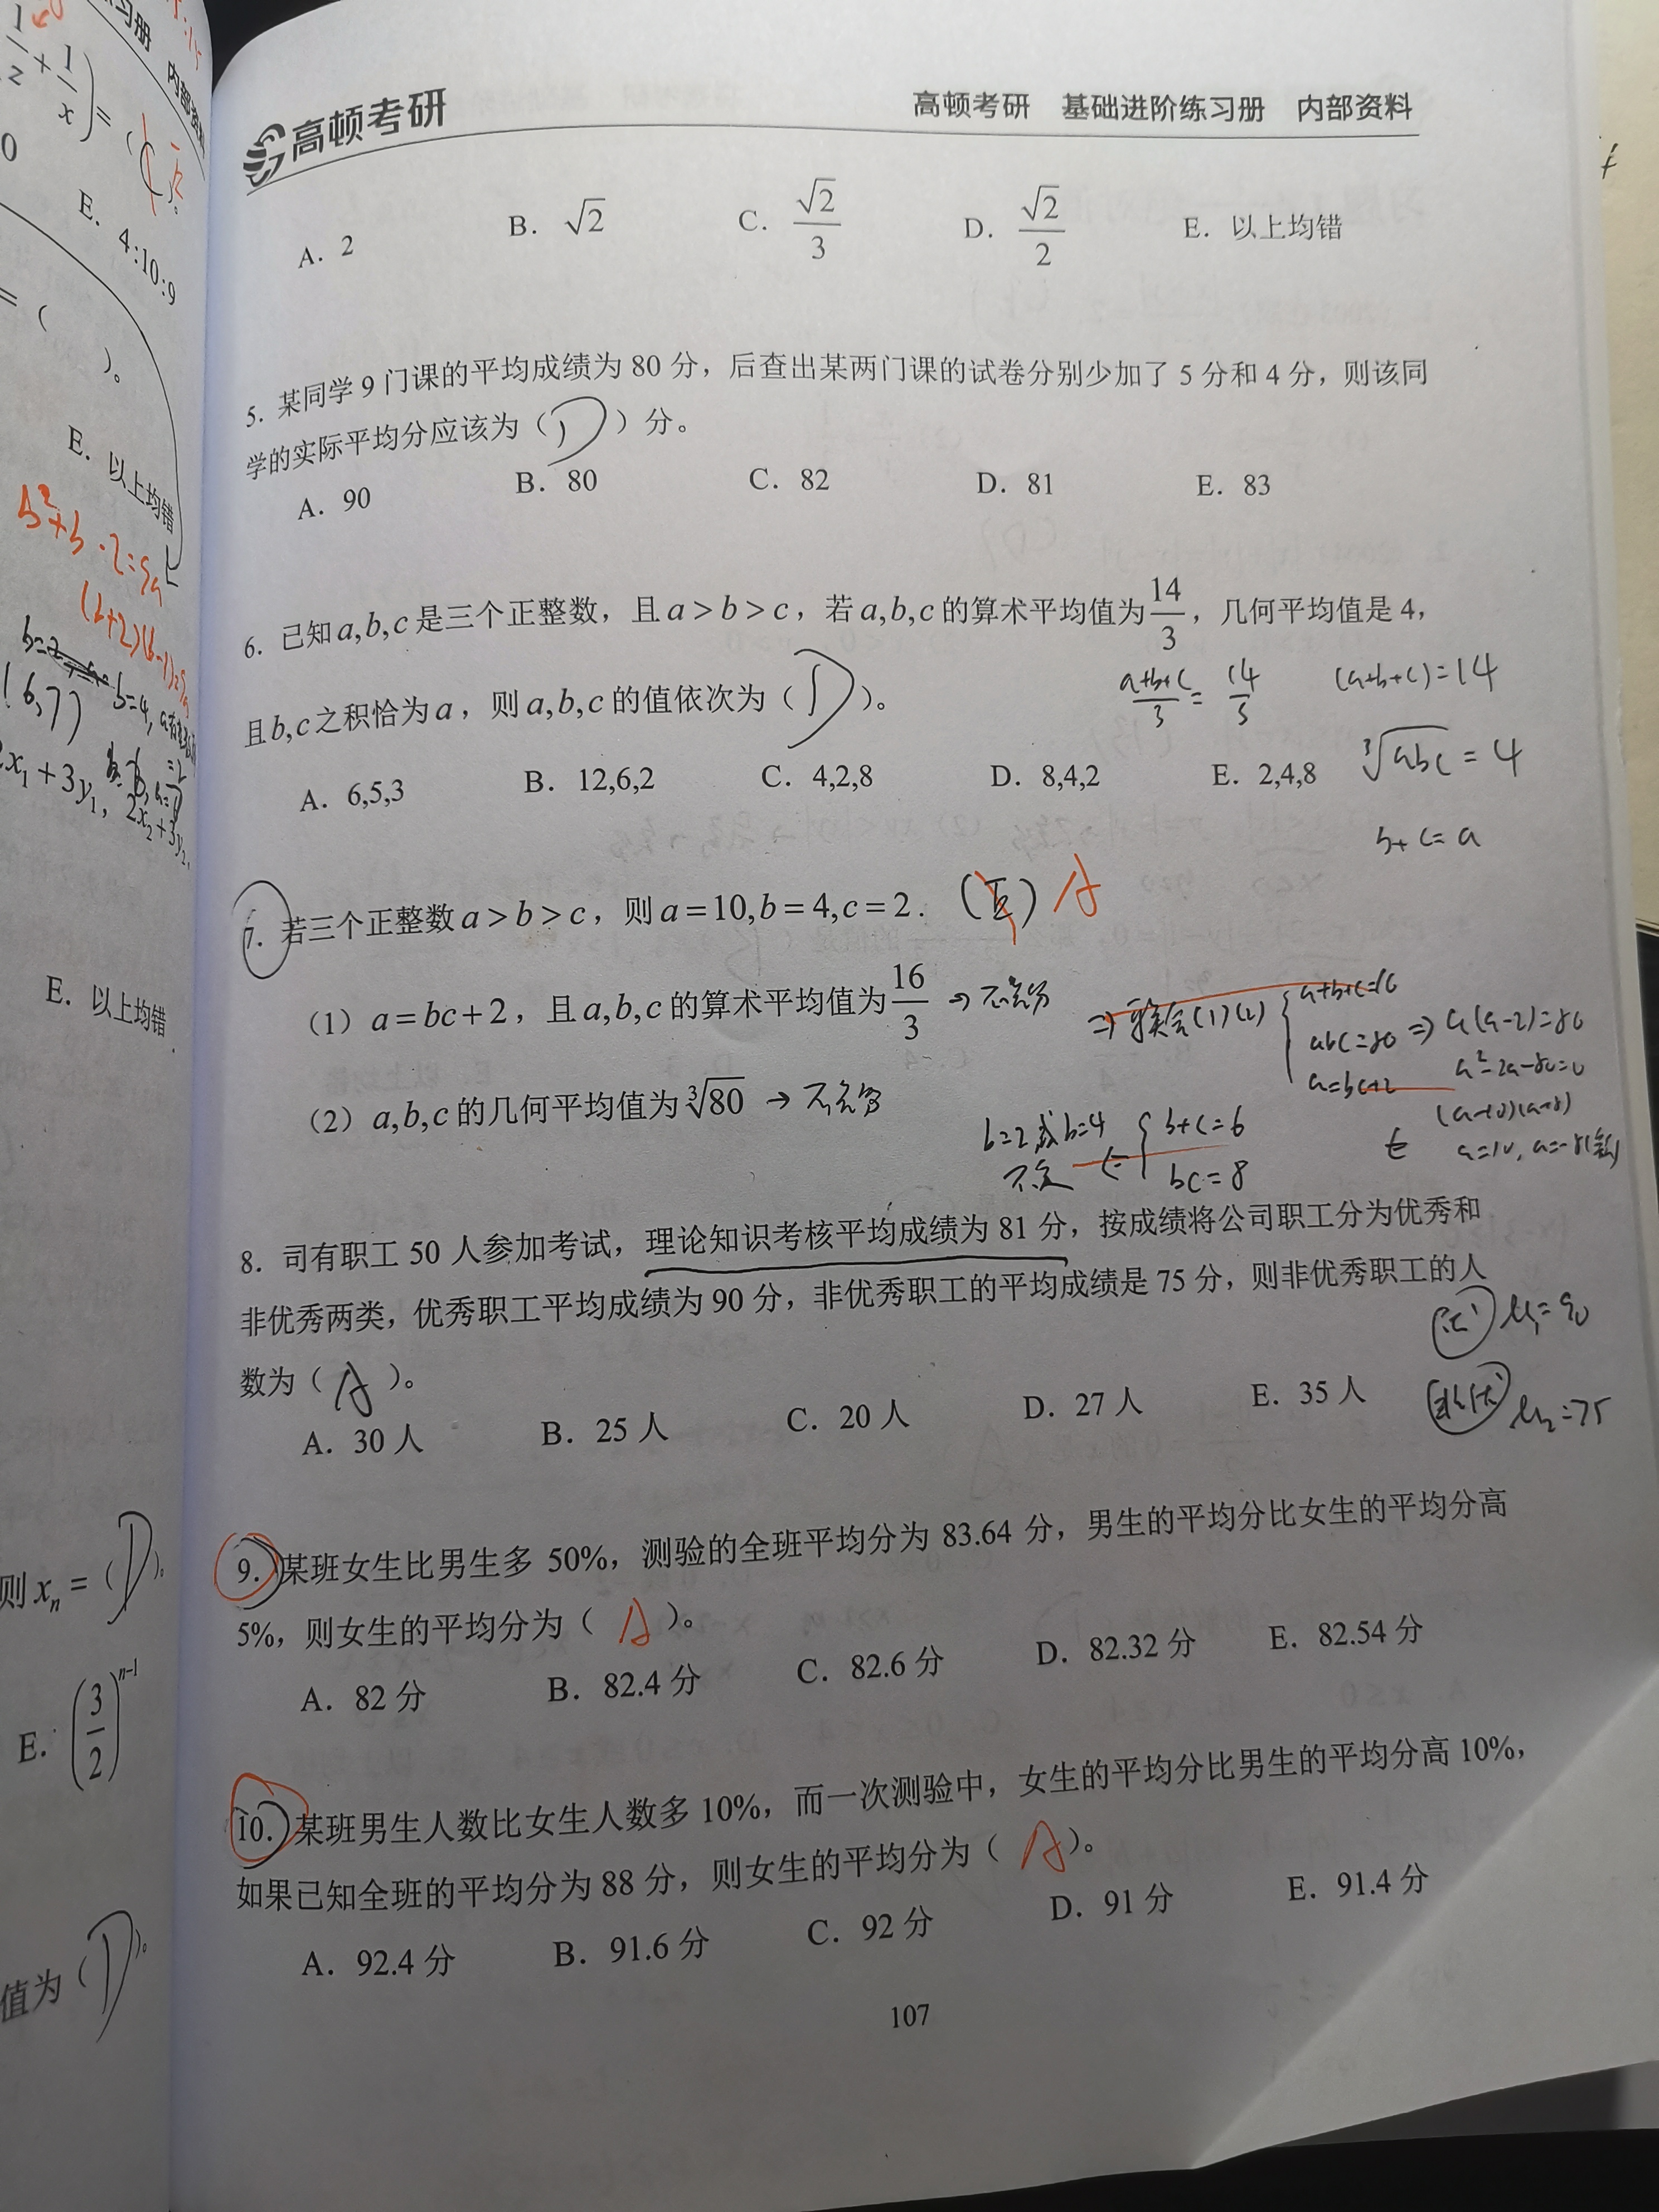 高顿考研
高顿考研 基础进阶练习册 内部资料
A. 2 B. √2 C. √2/3 D. √2/2 E. 以上均错
5. 某同学 9 门课的平均成绩为 80 分，后查出某两门课的试卷分别少加了 5 分和 4 分，则该同
学的实际平均分应该为（D）分。
A. 90 B. 80 C. 82 D. 81 E. 83
6. 已知 a,b,c 是三个正整数，且 a > b > c，若 a,b,c 的算术平均值为 14/3，几何平均值是 4，
且 b,c 之积恰为 a，则 a,b,c 的值依次为（D）。
(a+b+c)/3 = 14/3 (a+b+c)=14
A. 6,5,3 B. 12,6,2 C. 4,2,8 D. 8,4,2 E. 2,4,8
∛abc = 4
b+c=a
7. 若三个正整数 a > b > c，则 a=10,b=4,c=2. (E) A
（1）a=bc+2，且 a,b,c 的算术平均值为 16/3 → 不充分
⇒ (1)(2) a+b+c=16
abc=80 ⇒ a(a-2)=80
a=bc+2 a²-2a-80=0
（2）a,b,c 的几何平均值为 ∛80 → 不充分
(a-10)(a+8)
a=10, a=-8
b=2或b=4 ⇐ b+c=6
不定 bc=8
8. 司有职工 50 人参加考试，理论知识考核平均成绩为 81 分，按成绩将公司职工分为优秀和
非优秀两类，优秀职工平均成绩为 90 分，非优秀职工的平均成绩是 75 分，则非优秀职工的人
数为（A）。
优 u₁=90
非优 u₂=75
A. 30 人 B. 25 人 C. 20 人 D. 27 人 E. 35 人
9. 某班女生比男生多 50%，测验的全班平均分为 83.64 分，男生的平均分比女生的平均分高
5%，则女生的平均分为（A）。
A. 82 分 B. 82.4 分 C. 82.6 分 D. 82.32 分 E. 82.54 分
10. 某班男生人数比女生人数多 10%，而一次测验中，女生的平均分比男生的平均分高 10%，
如果已知全班的平均分为 88 分，则女生的平均分为（A）。
A. 92.4 分 B. 91.6 分 C. 92 分 D. 91 分 E. 91.4 分
107
习册 内部资料
+ 1/x) = (
0
E. 4:10:9
= ( )。
E. 以上均错
b²+b-2=9a
(b+2)(b-1)=9a
b=4,
(6,7)
x₁+3y₁, 2x₂+3y₂,
E. 以上均错
则 xₙ = (D)。
E. (3/2)ⁿ⁻¹
值为（D）。